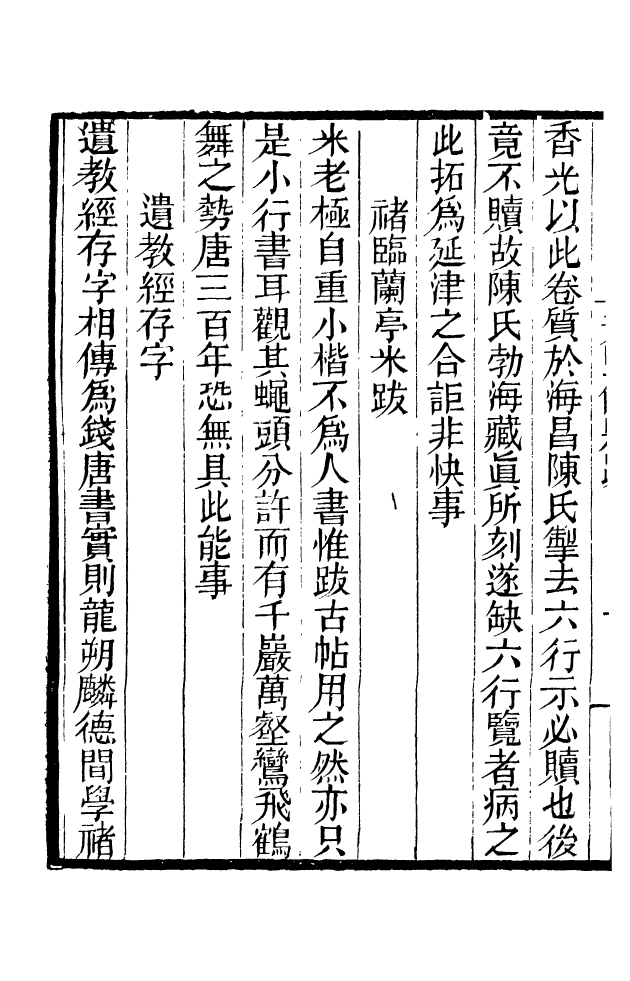 香光以此卷質於海昌陳氏掣去六行示必贖也後
竟不贖故陳氏勃海藏眞所刻遂缺六行覽者病之
此拓爲延津之合詎非快事
褚臨蘭亭米跋
米老極自重小楷不爲人書惟跋古帖用之然亦只
是小行書耳觀其蠅頭分許而有千巖萬壑鸞飛鶴
舞之勢唐三百年恐無具此能事
遺教經存字
遺教經存字相傳爲錢唐書實則龍朔麟德間學褚